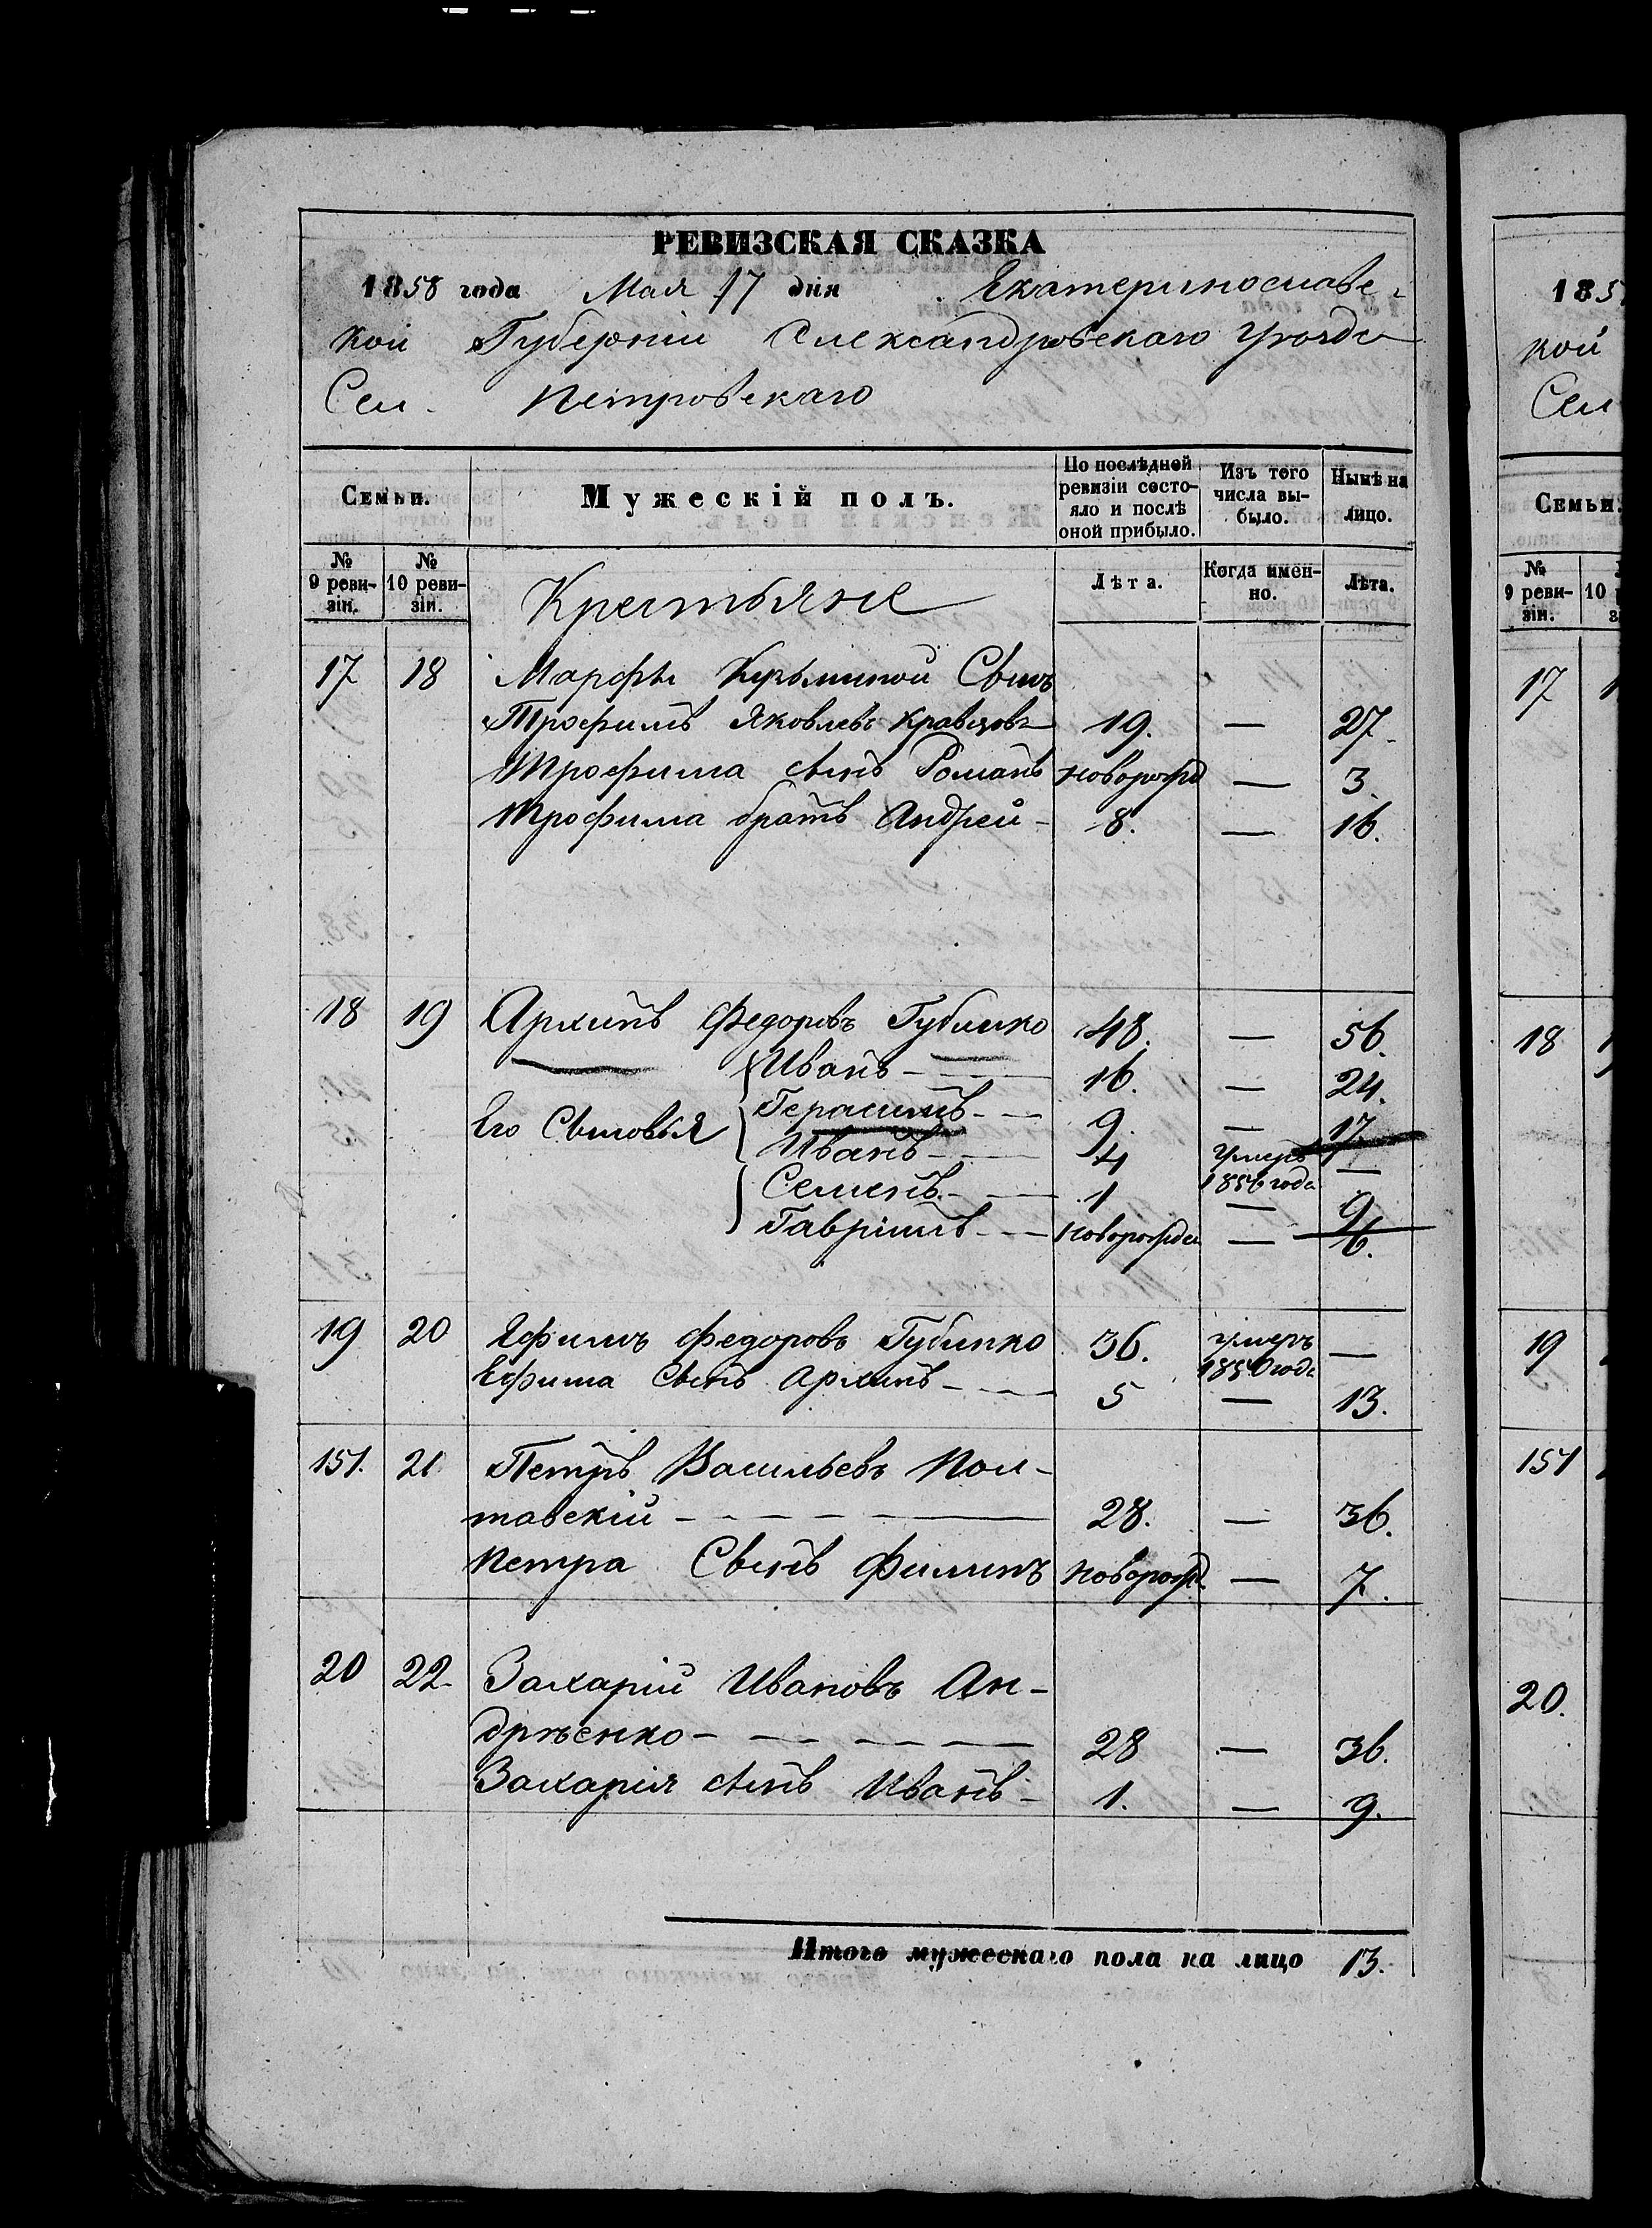 РЕВИЗСКАЯ СКАЗКА
1858 года Мая 17 дня Екатеринославс-
кой Губерніи Александровскаго Уѣзда
Сел. Петровскаго
Семьи. Мужескій полъ. По послѣдней ревизіи состояло и послѣ оной прибыло. Изъ того числа выбыло. Нынѣ на лицо.
№ 9 ревизіи. № 10 ревизіи. Крестьяне Лѣта. Когда именно. Лѣта.
17 18 Марфы Сынъ
Трофимъ Яковлевъ Кравцовъ 19. — 27
Трофима сынъ Романъ новорожд — 3
Трофима братъ Андрей - 8. — 16.
18 19 Архипъ Федоровъ Губинко 48. — 56.
Иванъ 16. — 24.
Его Сыновья Герасимъ 9. — 17
Иванъ 4 умеръ 1856 года —
Семенъ 1 — 9
Гавріилъ новорожден — 6.
19 20 Ефимъ Федоровъ Губинко 36. умеръ 1850 года —
Ефима Сынъ Архипъ 5 — 13.
151. 21 Петръ Васильевъ Пол-
тавскій 28. — 36.
Петра Сынъ Филипъ новорожд. — 7.
20 22 Захарій Ивановъ Ан-
дрѣенко 28 — 36.
Захарія сынъ Иванъ 1. — 9.
Итого мужескаго пола на лицо 13.
185
кой
Сел
Семьи.
№ 9 ревизіи. 10
17
18
19
151
20.